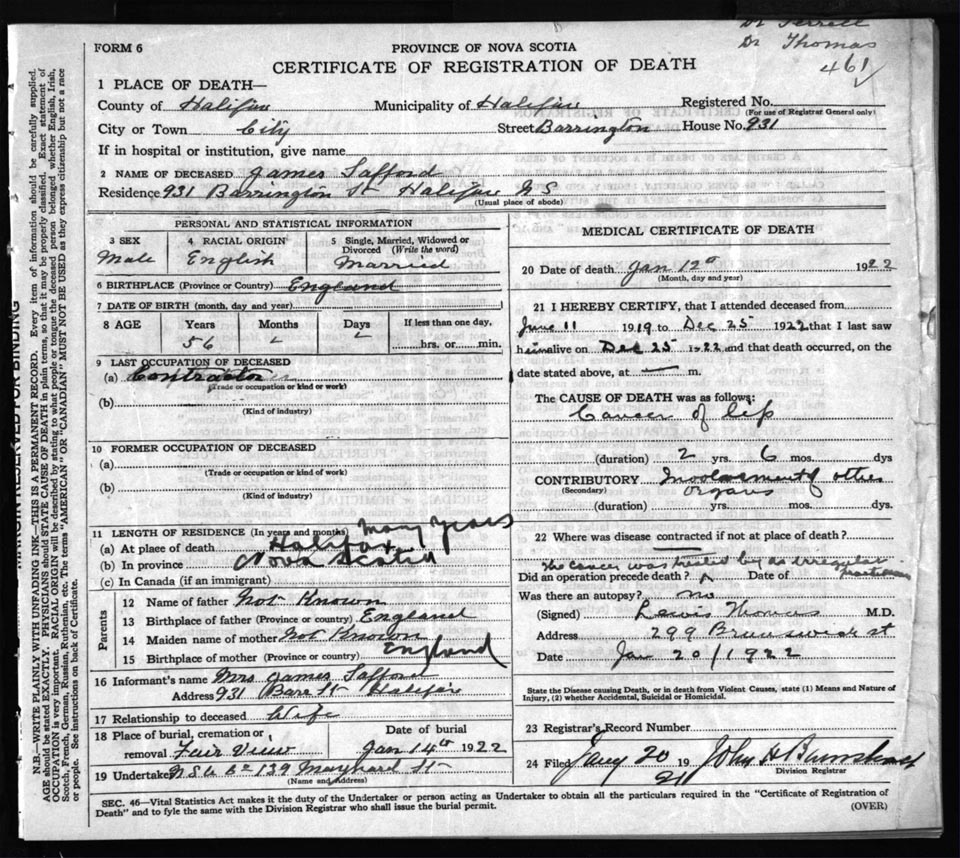 Dr Terrell
Dr Thomas
461
FORM 6
PROVINCE OF NOVA SCOTIA
CERTIFICATE OF REGISTRATION OF DEATH
1 PLACE OF DEATH—
County of Halifax Municipality of Halifax Registered No.
(For use of Registrar General only)
City or Town City Street Barrington House No. 931
If in hospital or institution, give name
2 NAME OF DECEASED James Safford
Residence 931 Barrington St Halifax N S
(Usual place of abode)
PERSONAL AND STATISTICAL INFORMATION
3 SEX 4 RACIAL ORIGIN 5 Single, Married, Widowed or Divorced (Write the word)
Male English Married
6 BIRTHPLACE (Province or Country) England
7 DATE OF BIRTH (month, day and year)
8 AGE Years Months Days If less than one day,
56 hrs. or min.
9 LAST OCCUPATION OF DECEASED
(a) Contractor
(Trade or occupation or kind of work)
(b)
(Kind of industry)
10 FORMER OCCUPATION OF DECEASED
(a)
(Trade or occupation or kind of work)
(b)
(Kind of industry)
11 LENGTH OF RESIDENCE (In years and months) Many Years
(a) At place of death Halifax
(b) In province Nova Scotia
(c) In Canada (if an immigrant)
Parents
12 Name of father Not Known
13 Birthplace of father (Province or country) England
14 Maiden name of mother Not Known
15 Birthplace of mother (Province or country) England
16 Informant's name Mrs James Safford
Address 931 Barr St Halifax
17 Relationship to deceased Wife
18 Place of burial, cremation or removal Fair View Date of burial Jan 14th 1922
19 Undertaker N S U Co 139 Maynard St
(Name and Address)
MEDICAL CERTIFICATE OF DEATH
20 Date of death Jan 12th 1922
(Month, day and year)
21 I HEREBY CERTIFY, that I attended deceased from
June 11 1919 to Dec 25 1922 that I last saw
him alive on Dec 25 1922 and that death occurred, on the
date stated above, at — m.
The CAUSE OF DEATH was as follows:
Cancer of Lip
(duration) 2 yrs. 6 mos. dys
CONTRIBUTORY Involvement of other
(Secondary) organs
(duration) yrs. mos. dys.
22 Where was disease contracted if not at place of death?
The cancer was treated by an irregular practitioner
Did an operation precede death? Date of
Was there an autopsy? no
(Signed) Lewis Thomas M.D.
Address 299 Brunswick st
Date Jan 20/1922
State the Disease causing Death, or in death from Violent Causes, state (1) Means and Nature of
Injury, (2) whether Accidental, Suicidal or Homicidal.
23 Registrar's Record Number
24 Filed Jany 20 19 John H Barnstead
Division Registrar
SEC. 46—Vital Statistics Act makes it the duty of the Undertaker or person acting as Undertaker to obtain all the particulars required in the "Certificate of Registration of
Death" and to fyle the same with the Division Registrar who shall issue the burial permit.
(OVER)
MARGIN RESERVED FOR BINDING
N.B.—WRITE PLAINLY WITH UNFADING INK—THIS IS A PERMANENT RECORD. Every item of information should be carefully supplied.
AGE should be stated EXACTLY. PHYSICIANS should STATE CAUSE OF DEATH in plain terms, so that it may be properly classified. Exact statement of
OCCUPATION is very important. RACIAL ORIGIN will be described by stating to what people or tongue the deceased person belonged whether English, Irish,
Scotch, French, German, Russian, Ruthenian, etc. The terms "AMERICAN" OR "CANADIAN" MUST NOT BE USED as they express citizenship but not a race
or people. See instructions on back of Certificate.